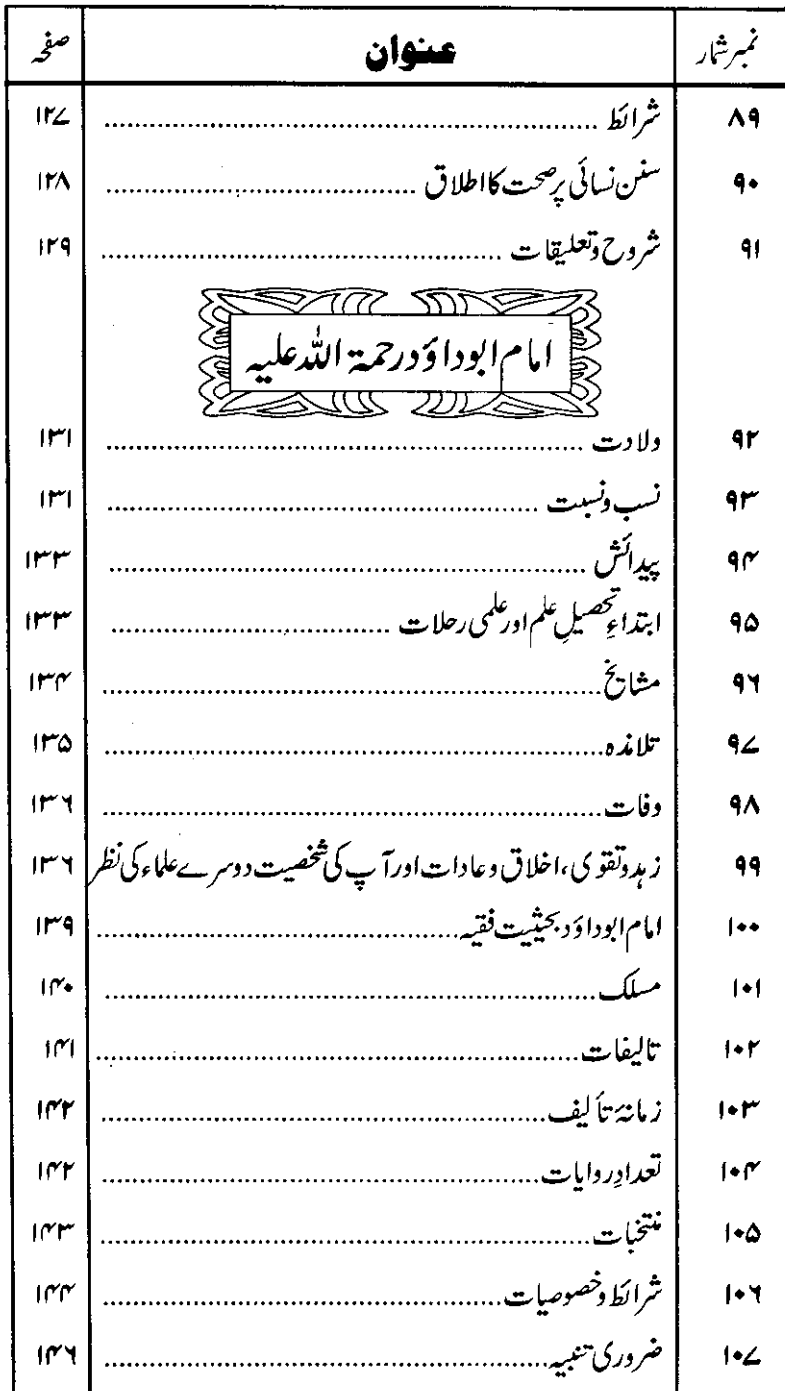 نمبر شمار عنوان صفحہ
۸۹ شرائط ........................ ۱۲۷
۹۰ سنن نسائی پر صحت کا اطلاق ........................ ۱۲۸
۹۱ شروح و تعلیقات ........................ ۱۲۹
امام ابوداؤد رحمۃ اللہ علیہ
۹۲ ولادت ........................ ۱۳۱
۹۳ نسب و نسبت ........................ ۱۳۱
۹۴ پیدائش ........................ ۱۳۳
۹۵ ابتداءِ تحصیلِ علم اور علمی رحلات ........................ ۱۳۳
۹۶ مشایخ ........................ ۱۳۴
۹۷ تلامذہ ........................ ۱۳۵
۹۸ وفات ........................ ۱۳۶
۹۹ زہد و تقوی، اخلاق و عادات اور آپ کی شخصیت دوسرے علماء کی نظر ۱۳۶
۱۰۰ امام ابوداؤد بحیثیت فقیہ ........................ ۱۳۹
۱۰۱ مسلک ........................ ۱۴۰
۱۰۲ تالیفات ........................ ۱۴۱
۱۰۳ زمانۂ تألیف ........................ ۱۴۲
۱۰۴ تعدادِ روایات ........................ ۱۴۲
۱۰۵ منتخبات ........................ ۱۴۳
۱۰۶ شرائط و خصوصیات ........................ ۱۴۴
۱۰۷ ضروری تنبیہ ........................ ۱۴۶